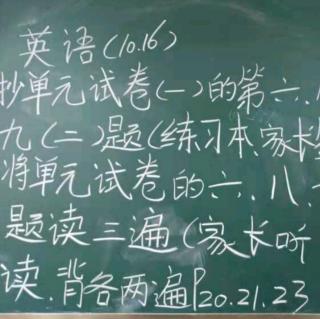 英语(10.16)
抄单元试卷(一)的第六、
九(二)题(练习本、家长
将单元试卷的六、八、
题读三遍(家长听
读、背各两遍P20.21.23